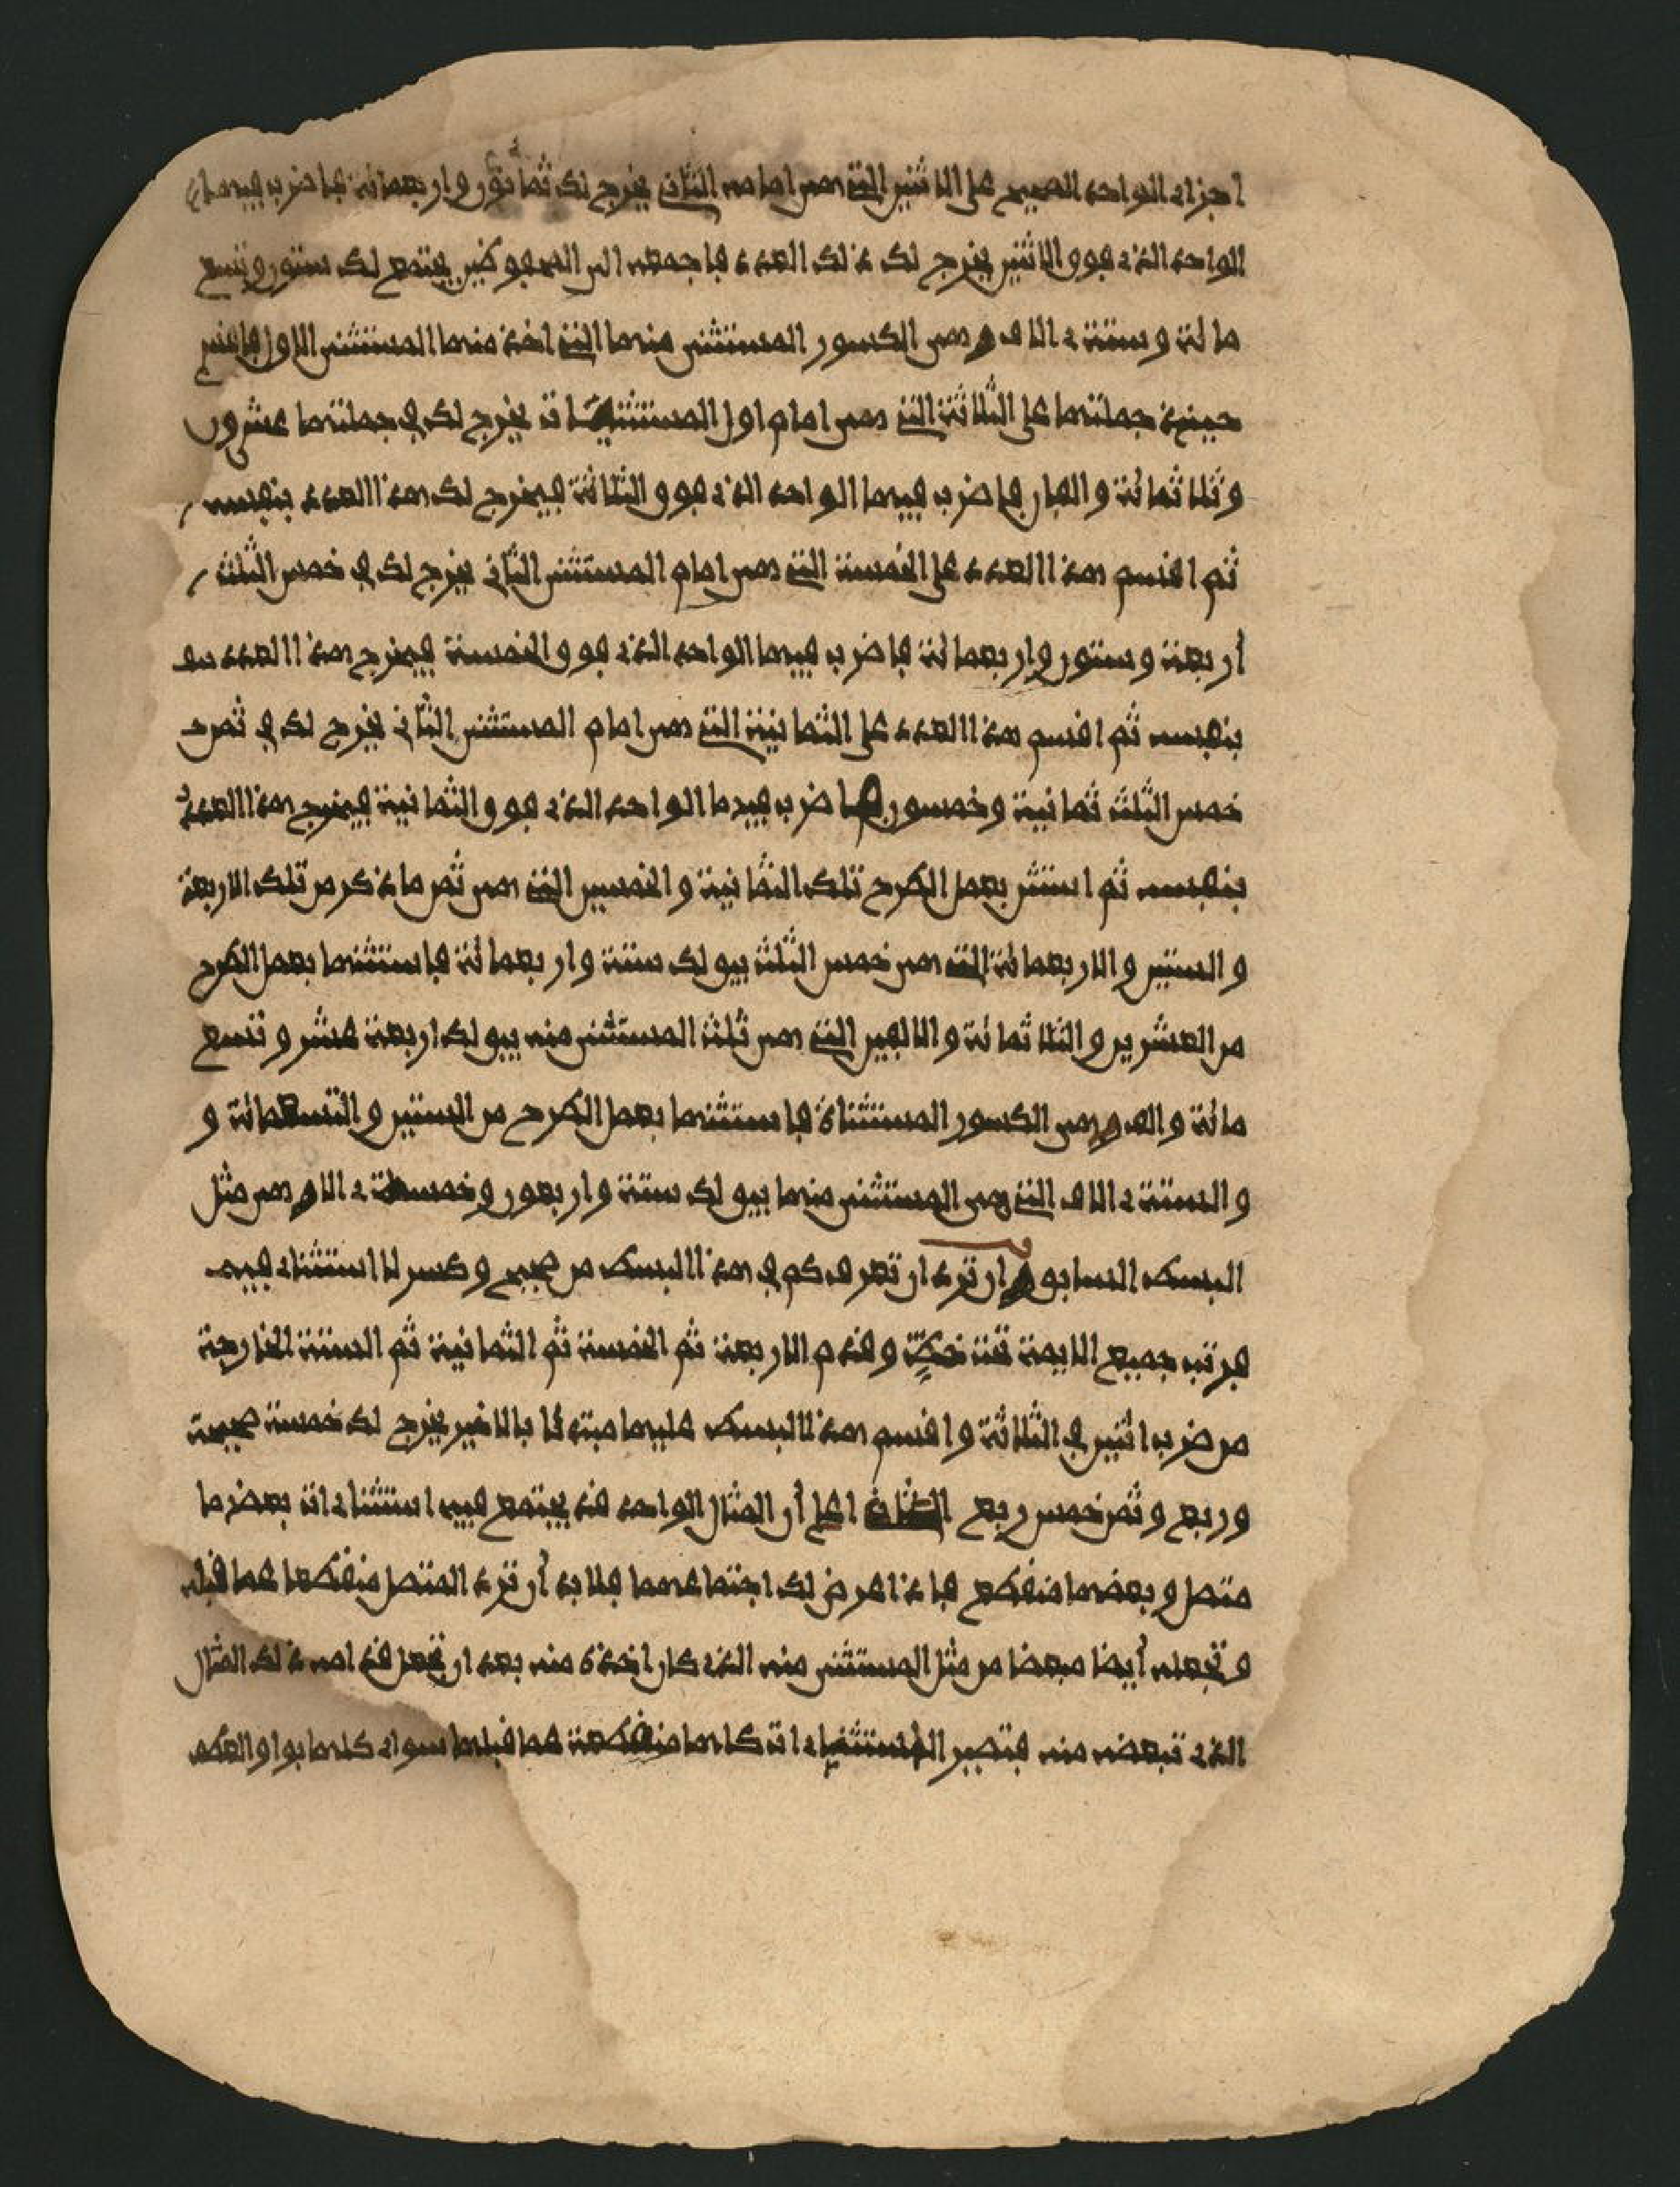 اجزاء الواحد الصحيح على الاثنين التي هي امامه الثاني يخرج لك ثمانون واربعمائة فاضرب فيهما
الواحد الذي فوق الاثنين يخرج لك ذلك العدد فاجمعه الى المحفوظين يجتمع لك ستون وتسع
مائة وستة ءالاف وهي الكسور المستثنى منها التي اخذ منها المستثنى الاول فاقسم
حينئذ جملتها على الثلاثة التي هي امام اول المستثنيات يخرج لك في جملتها عشرون
وثلاثمائة والفان فاضرب فيها الواحد الذي فوق الثلاثة فيخرج لك هذا العدد بنفسه
ثم اقسم هذا العدد على الخمسة التي هي امام المستثنى الثاني يخرج لك في خمس الثلث
أربعة وستون واربعمائة فاضرب فيها الواحد الذي فوق الخمسة فيخرج هذا العدد
بنفسه ثم اقسم هذا العدد على الثمانية التي هي امام المستثنى الثاني يخرج لك في ثمن
خمس الثلث ثمانية وخمسون فاضرب فيها الواحد الذي فوق الثمانية فيخرج هذا العدد
بنفسه ثم استثن بعمل الطرح تلك الثمانية والخمسين التي هي ثمن ما ذكر من تلك الاربعة
والستين والاربعمائة التي هي خمس الثلث يبق لك ستة واربعمائة فاستثنها بعمل الطرح
من العشرين والثلاثمائة والالفين التي هي ثلث المستثنى منه يبق لك اربعة عشر وتسع
مائة والف وهي الكسور المستثناة فاستثنها بعمل الطرح من الستين والتسعمائة و
والستة ءالاف التي هي المستثنى منها يبق لك ستة واربعون وخمسة ءالاف وهي مثل
البسط السابق وان ترد ان تعرف كم في هذا البسط من صحيح وكسر لا استثناء فيه
فرتب جميع الايمة تحت خط وقدم الاربعة ثم الخمسة ثم الثمانية ثم الستة الخارجة
من ضرب اثنين في الثلاثة واقسم هذا البسط عليها مبتدئا بالاخير يخرج لك خمسة صحيحة
وربع وثمن خمس ربع الثاني اعلم أن المثال الواحد قد يجتمع فيه استثناءات بعضها
متصل وبعضها منقطع فاذا عرض لك اجتماعهما فلا بد أن ترد المتصل منقطعا عما قبله
وتجعله أيضا مبعضا من مثل المستثنى منه الذي كان اخذه منه بعد ان تجعل قدامه ذلك المثال
الذي تبعضه منه فتصير الاستثناءات كلها منقطعة عما قبلها سواء كلها بواو العطف